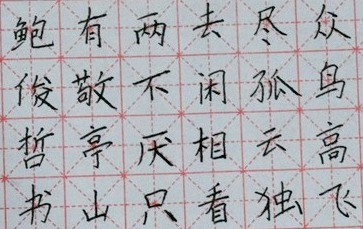 众鸟高飞
尽孤云独
去闲相看
两不厌只
有敬亭山
鲍俊哲书